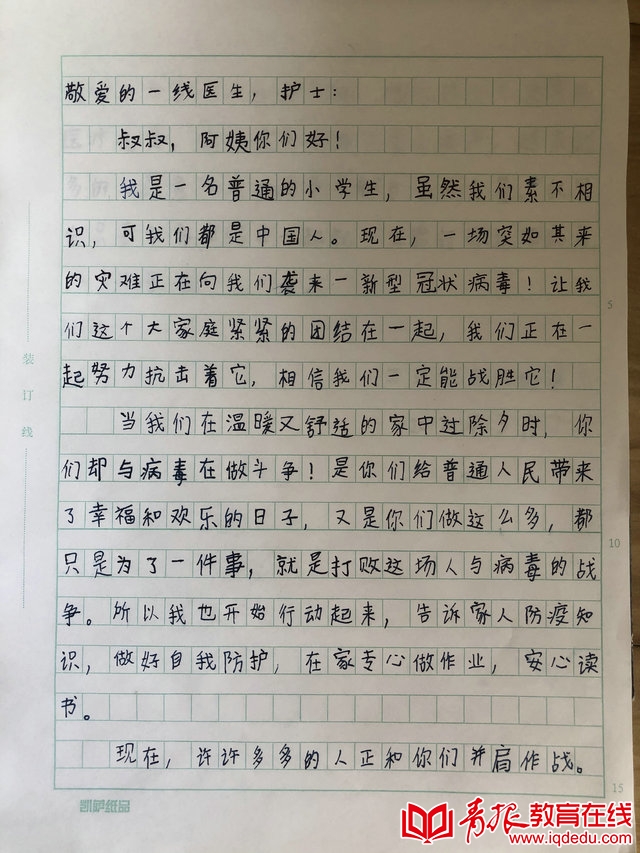 敬爱的一线医生，护士：
叔叔，阿姨你们好！
我是一名普通的小学生，虽然我们素不相
识，可我们都是中国人。现在，一场突如其来
的灾难正在向我们袭来一新型冠状病毒！让我
们这个大家庭紧紧的团结在一起，我们正在一
起努力抗击着它，相信我们一定能战胜它！
当我们在温暖又舒适的家中过除夕时，你
们却与病毒在做斗争！是你们给普通人民带来
了幸福和欢乐的日子，又是你们做这么多，都
只是为了一件事，就是打败这场人与病毒的战
争。所以我也开始行动起来，告诉家人防疫知
识，做好自我防护，在家专心做作业，安心读
书。
现在，许许多多的人正和你们并肩作战。
装订线
5
10
15
凯萨纸品
青报教育在线
www.iqdedu.com